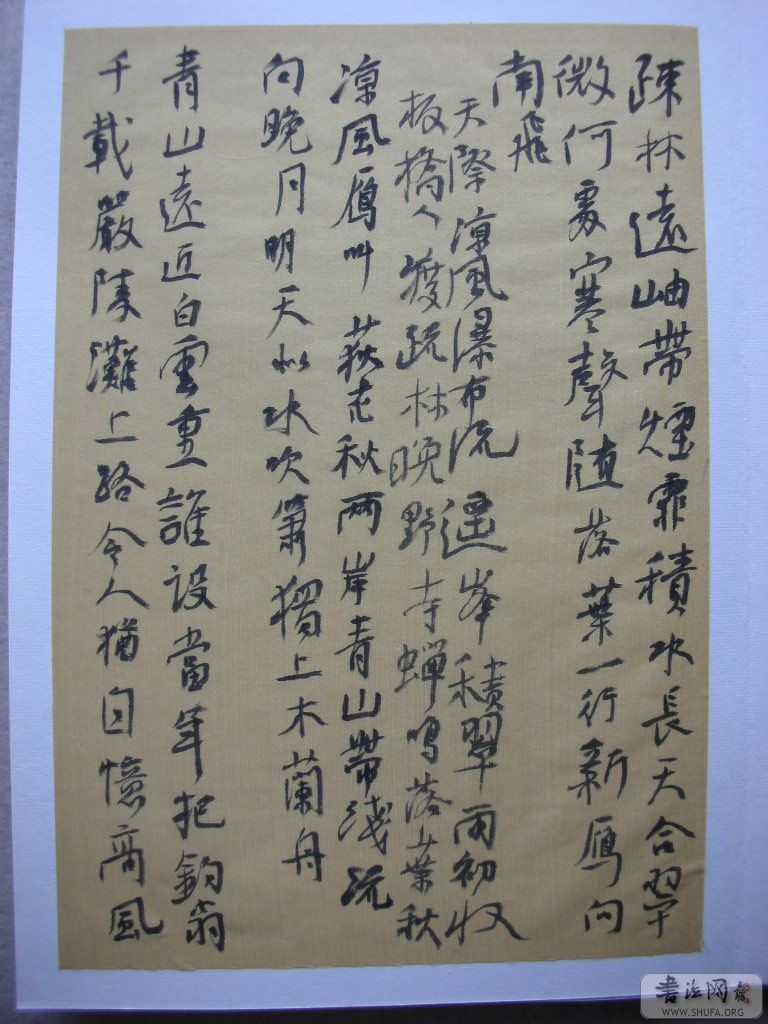 疎林遠岫帶煙霏積水長天合翠
微何處寒聲隨落葉一行新雁向
南飛
天際凉風瀑布流遥峯積翠雨初收
板橋人渡疏林晚野寺蟬鳴落葉秋
凉風雁叫荻花秋兩岸青山帶淺流
向晚月明天似水吹簫獨上木蘭舟
青山遠近白雲重誰設當年把釣翁
千載嚴陵灘上路令人猶自憶高風
書法网
WWW.SHUFA.ORG